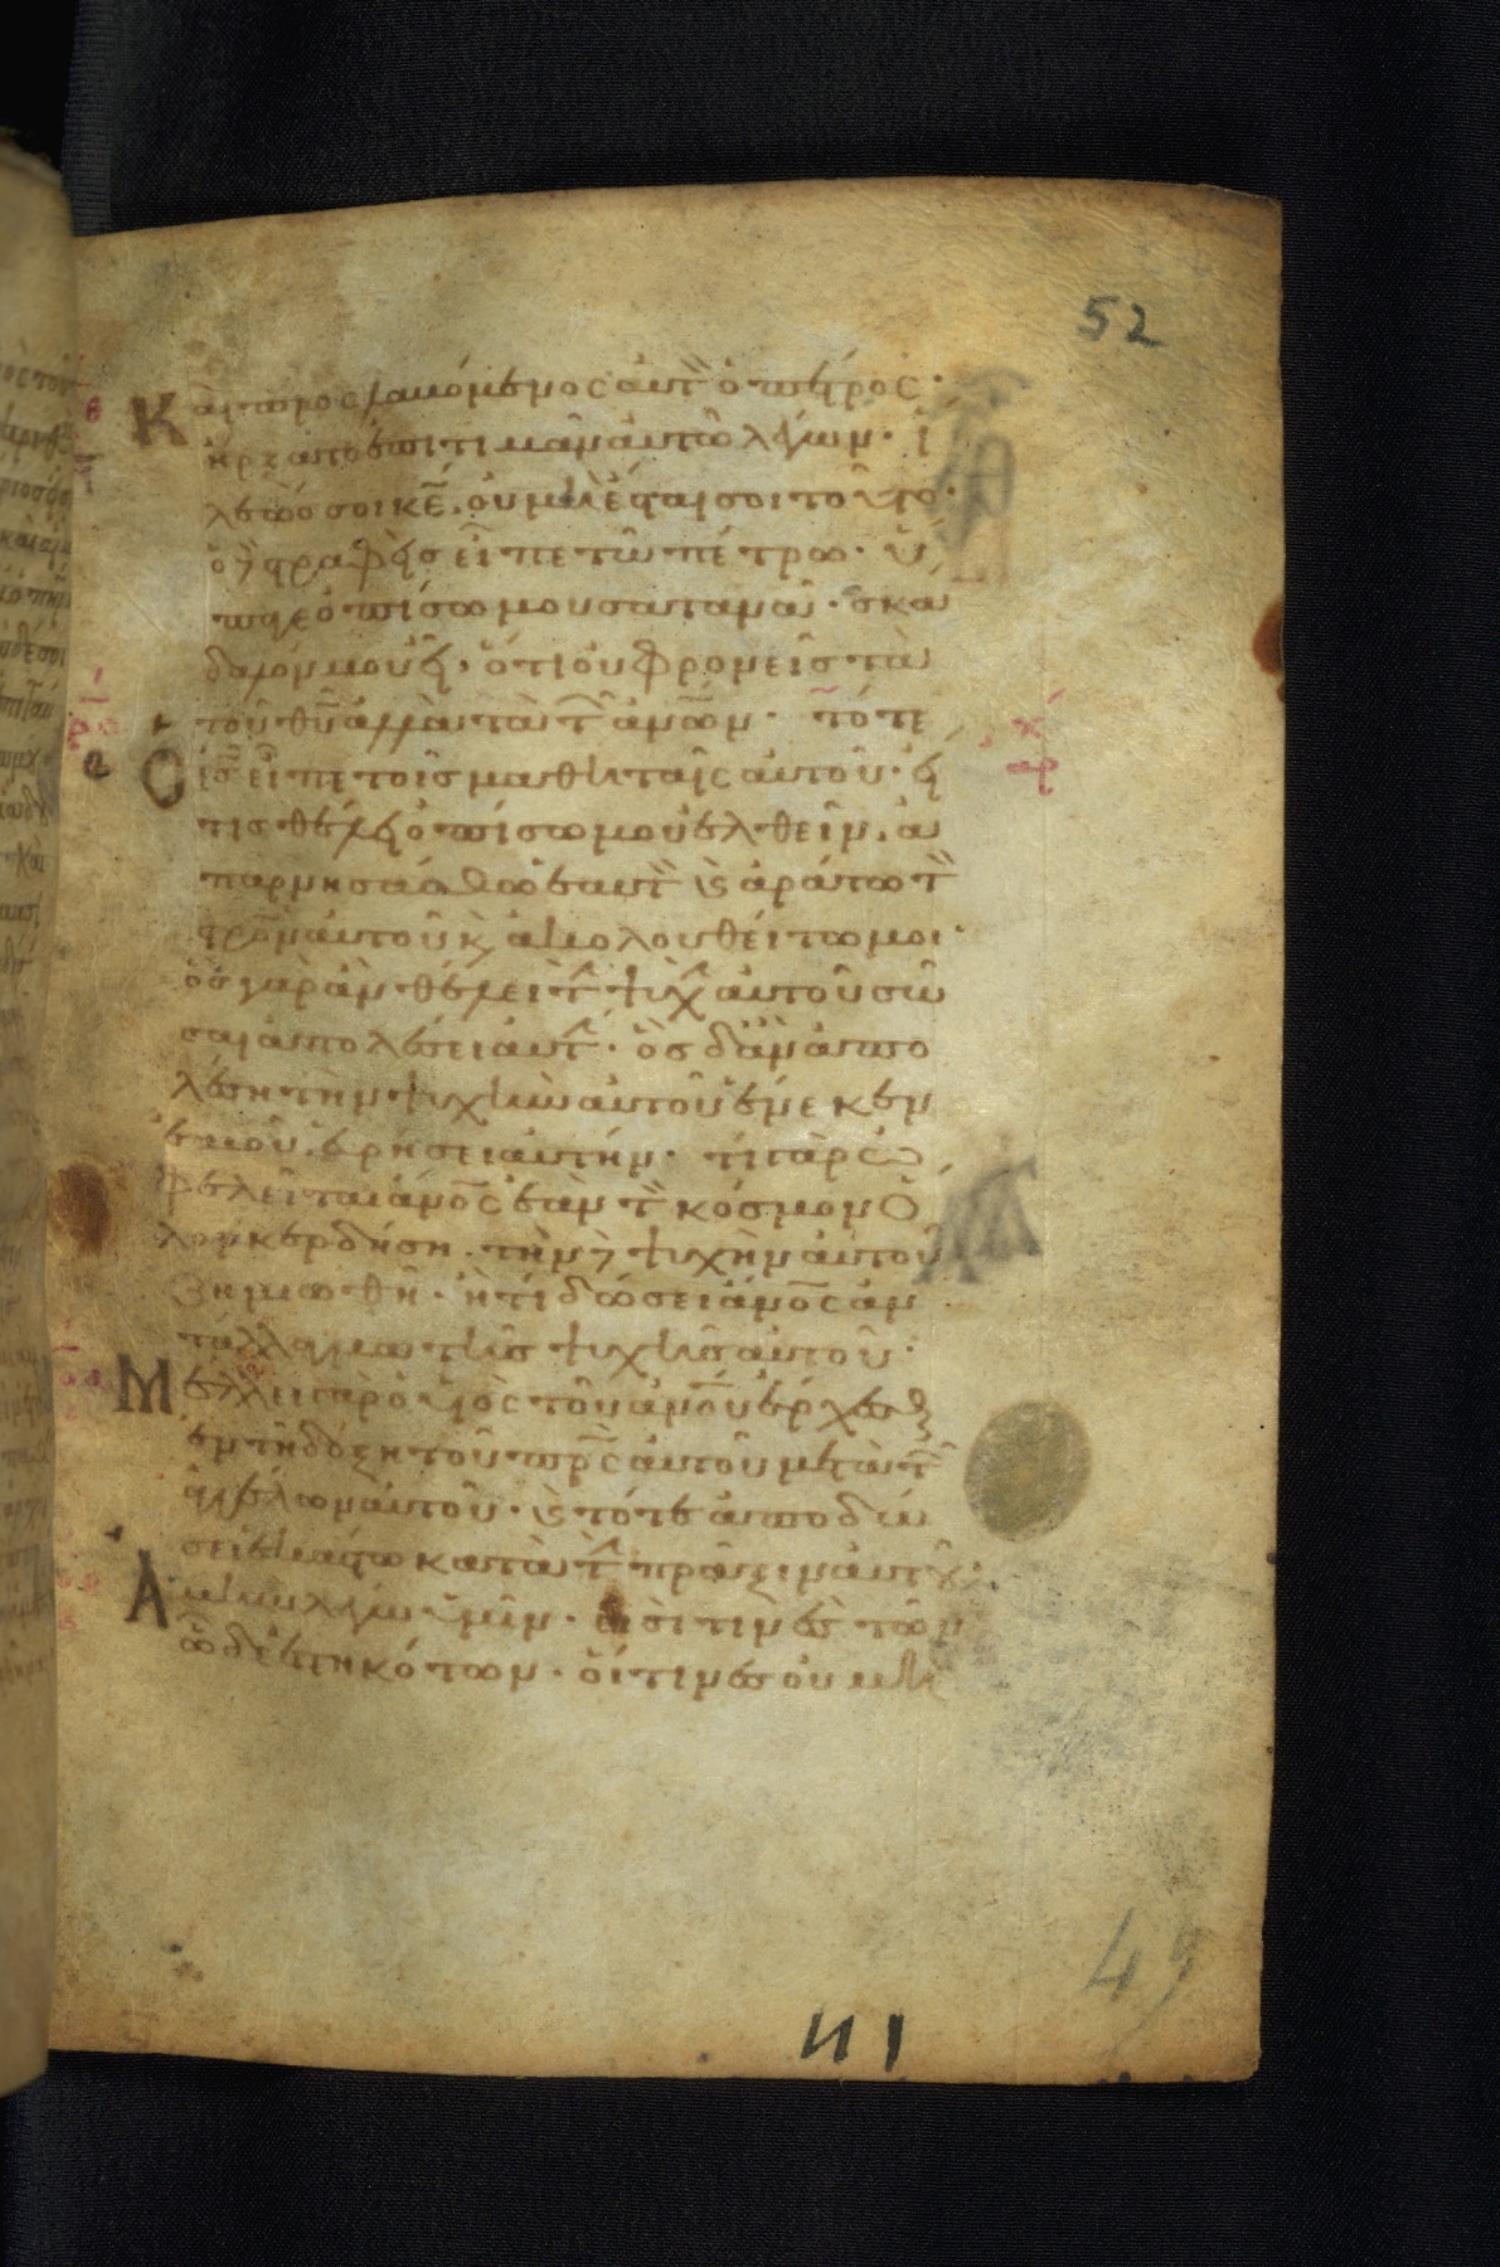 52
Καὶ προσλαβόμενος αὐτὸν ὁ πέτρος·
ἤρξατο ἐπιτιμᾶν αὐτῶ λέγων· ἵ
λεώς σοι κε̄. οὐ μὴ ἔσται σοι τοῦτο·
ὁ δὲ στραφεὶς εἶπε τῶ πέτρω· ὕ
παγε ὀπίσω μου σατανᾶ· σκαν
δαλόν μου εἶ. ὅτι οὐ φρονεῖς τὰ
τοῦ θῡ ἀλλὰ τὰ τῶν ἀνῶν· τότε
Ὁ ις̄ εἶπε τοῖς μαθηταῖς αὐτοῦ· εἴ
τις θέλει ὀπίσω μου ἐλθεῖν. ἀ
παρνησάσθω ἑαυτὸν καὶ ἀράτω τὸν
στρὸν αὐτοῦ καὶ ἀκολουθείτω μοι·
ὃς γὰρ ἂν θέλει τὴν ψυχὴν αὐτοῦ σῶ
σαι ἀπολέσει αὐτήν· ὃς δ' ἂν ἀπο
λέση τὴν ψυχὴν αὐτοῦ ἕνεκεν
ἐμοῦ εὑρήσει αὐτήν· τί γὰρ ὠ
φελεῖται ἄνος ἐὰν τὸν κόσμον ὅ
λον κερδήση. τὴν δὲ ψυχὴν αὐτοῦ
ζημιωθῆ· ἢ τί δώσει ἄνος ἀν
τάλλαγμα τῆς ψυχῆς αὐτοῦ·
Μέλλει γὰρ ὁ υἱὸς τοῦ ἀνοῦ ἔρχεσθαι
ἐν τῆ δόξη τοῦ πρς αὐτοῦ μετὰ τῶν
ἀγγέλων αὐτοῦ· καὶ τότε ἀποδώ
σει ἑκάστω κατὰ τὴν πρᾶξιν αὐτοῦ·
Ἀμὴν λέγω ὑμῖν· εἰσί τινες τῶν
ὧδε ἑστηκότων· οἵτινες οὐ μὴ
49